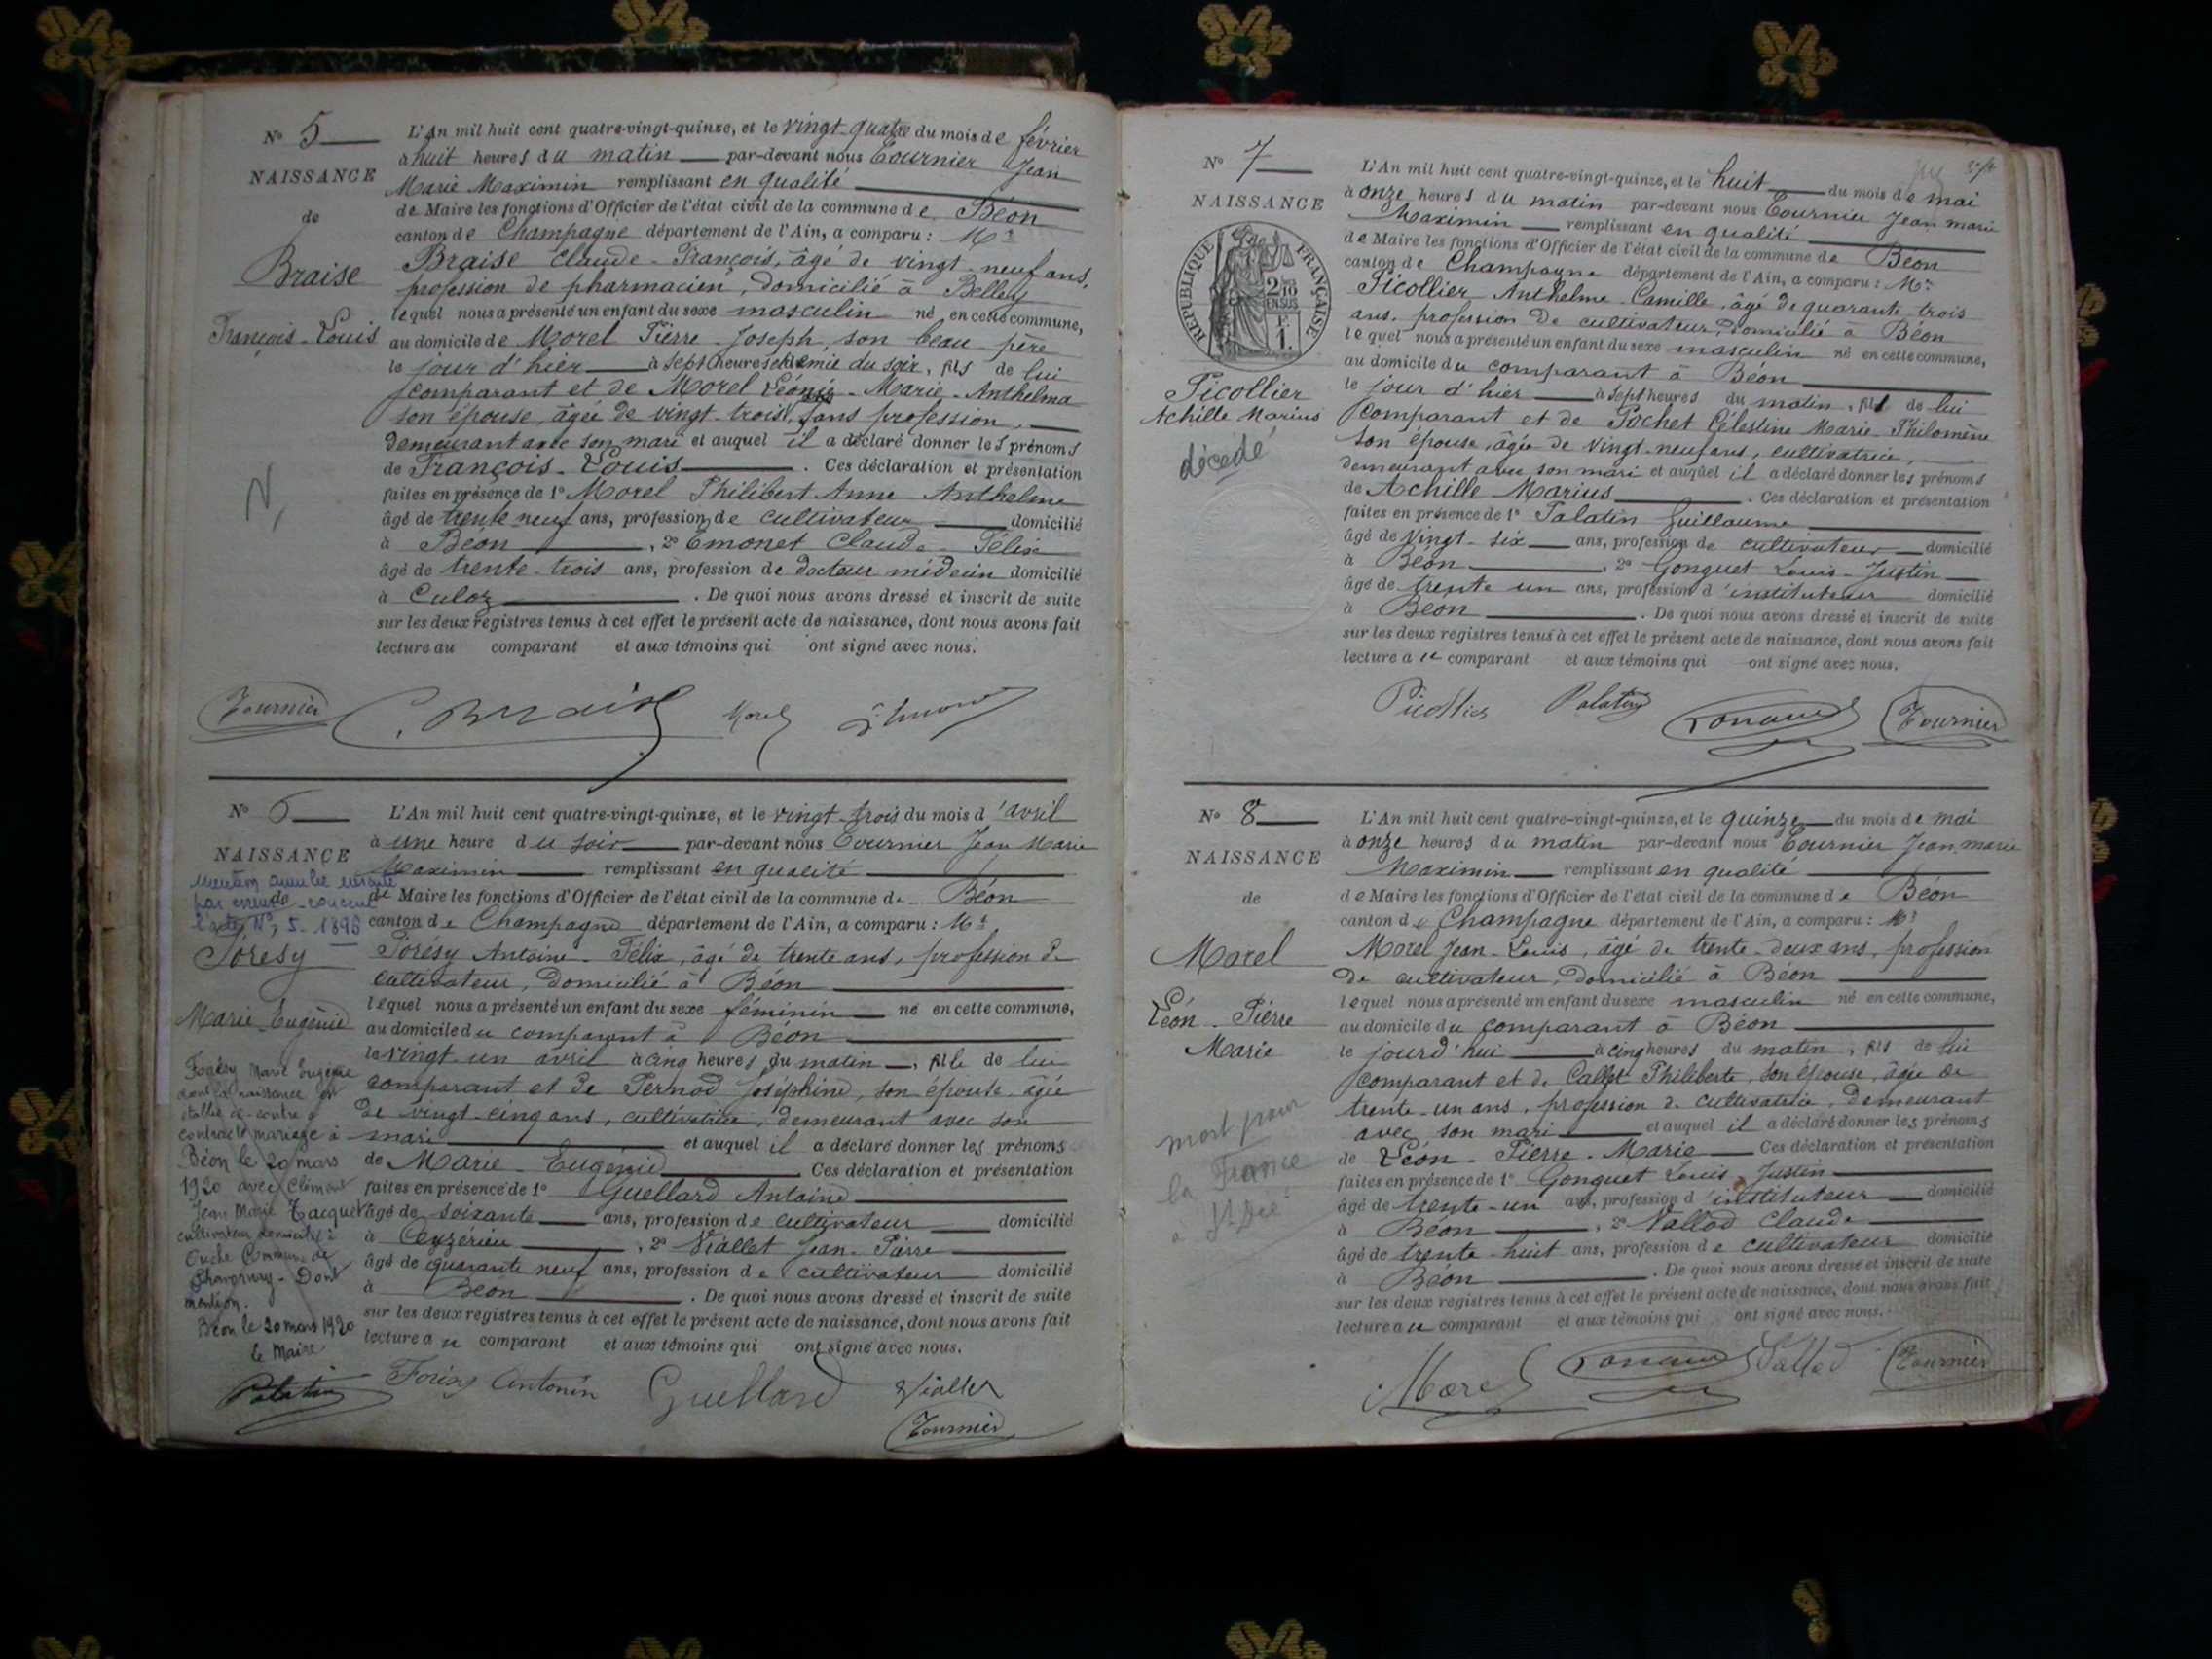 N° 5
NAISSANCE
de
Braise
François-Louis
L'An mil huit cent quatre-vingt-quinze, et le vingt-quatre du mois de février
à huit heures du matin par-devant nous Tournier Jean
Marie Maximin remplissant en qualité
de Maire les fonctions d'Officier de l'état civil de la commune de Béon
canton de Champagne département de l'Ain, a comparu : Mr
Braise Claude-François, âgé de vingt-neuf ans,
profession de pharmacien, domicilié à Belley
lequel nous a présenté un enfant du sexe masculin né en cette commune,
au domicile de Morel Pierre-Joseph son beau-père
le jour d'hier à sept heures et demie du soir, fils de lui
comparant et de Morel Léonie-Marie-Anthelma
son épouse, âgée de vingt-trois, sans profession,
demeurant avec son mari et auquel il a déclaré donner les prénoms
de François-Louis. Ces déclaration et présentation
faites en présence de 1° Morel Philibert Anne Anthelme
âgé de trente-neuf ans, profession de cultivateur domicilié
à Béon, 2° Emonet Claude-Félix
âgé de trente-trois ans, profession de docteur médecin domicilié
à Culoz. De quoi nous avons dressé et inscrit de suite
sur les deux registres tenus à cet effet le présent acte de naissance, dont nous avons fait
lecture au comparant et aux témoins qui ont signé avec nous.
Tournier C. Braise Morel
N° 6
NAISSANCE
mention annulée
par erreur concerne
l'acte N° 5-1896
de
Forésy
Marie-Eugénie
Forésy Marie Eugénie
dont la naissance est
établie ci-contre a
contracté mariage à
Béon le 20 mars
1920 avec Clément
Jean Marie Tacquet
cultivateur domicilié à
Ouche Commune de
Dont
mention.
Béon le 20 mars 1920
le Maire
Palatin
L'An mil huit cent quatre-vingt-quinze, et le vingt-trois du mois d'avril
à une heure du soir par-devant nous Tournier Jean Marie
Maximin remplissant en qualité
de Maire les fonctions d'Officier de l'état civil de la commune de Béon
canton de Champagne département de l'Ain, a comparu : Mr
Forésy Antoine-Félix, âgé de trente ans, profession de
cultivateur, domicilié à Béon
lequel nous a présenté un enfant du sexe féminin né en cette commune,
au domicile du comparant à Béon
le vingt-un avril à cinq heures du matin, fille de lui
comparant et de Pernod Joséphine, son épouse, âgée
de vingt-cinq ans, cultivatrice, demeurant avec son
mari et auquel il a déclaré donner les prénoms
de Marie-Eugénie Ces déclaration et présentation
faites en présence de 1° Guellard Antoine
âgé de soixante ans, profession de cultivateur domicilié
à Ceyzérieu, 2° Viallet Jean-Pierre
âgé de quarante neuf ans, profession de cultivateur domicilié
à Béon. De quoi nous avons dressé et inscrit de suite
sur les deux registres tenus à cet effet le présent acte de naissance, dont nous avons fait
lecture au comparant et aux témoins qui ont signé avec nous.
Antonin Guellard Viallet
Tournier
N° 7
NAISSANCE
REPUBLIQUE FRANÇAISE
2/10
EN SUS
E
1.
Picollier
Achille Marius
décédé
L'An mil huit cent quatre-vingt-quinze, et le huit du mois de mai
à onze heures du matin par-devant nous Tournier Jean marie
Maximin remplissant en qualité
de Maire les fonctions d'Officier de l'état civil de la commune de Béon
canton de Champagne département de l'Ain, a comparu : Mr
Picollier Anthelme-Camille, âgé de quarante-trois
ans, profession de cultivateur, domicilié à Béon
lequel nous a présenté un enfant du sexe masculin né en cette commune,
au domicile du comparant à Béon
le jour d'hier à sept heures du matin, fils de lui
comparant et de Pochet Célestine Marie Philomène
son épouse, âgée de vingt-neuf ans, cultivatrice,
demeurant avec son mari et auquel il a déclaré donner les prénoms
de Achille Marius. Ces déclaration et présentation
faites en présence de 1° Palatin Guillaume
âgé de vingt-six ans, profession de cultivateur domicilié
à Béon, 2° Gonguet Louis-Justin
âgé de trente un ans, profession d'instituteur domicilié
à Béon. De quoi nous avons dressé et inscrit de suite
sur les deux registres tenus à cet effet le présent acte de naissance, dont nous avons fait
lecture au comparant et aux témoins qui ont signé avec nous.
Picollier Palatin Tournier
N° 8
NAISSANCE
de
Morel
Léon-Pierre
Marie
mort pour
la France
à St Dié
L'An mil huit cent quatre-vingt-quinze, et le quinze du mois de mai
à onze heures du matin par-devant nous Tournier Jean-marie
Maximin remplissant en qualité
de Maire les fonctions d'Officier de l'état civil de la commune de Béon
canton de Champagne département de l'Ain, a comparu : Mr
Morel Jean-Louis, âgé de trente-deux ans, profession
de cultivateur, domicilié à Béon
lequel nous a présenté un enfant du sexe masculin né en cette commune,
au domicile du comparant à Béon
le jourd'hui à cinq heures du matin, fils de lui
comparant et de Callet Philiberte, son épouse, âgée de
trente-un ans, profession de cultivatrice, demeurant
avec son mari et auquel il a déclaré donner les prénoms
de Léon-Pierre-Marie Ces déclaration et présentation
faites en présence de 1° Gonguet Louis-Justin
âgé de trente-un ans, profession d'instituteur domicilié
à Béon, 2° Vallod Claude
âgé de trente-huit ans, profession de cultivateur domicilié
à Béon. De quoi nous avons dressé et inscrit de suite
sur les deux registres tenus à cet effet le présent acte de naissance, dont nous avons fait
lecture au comparant et aux témoins qui ont signé avec nous.
Morel Vallod Tournier